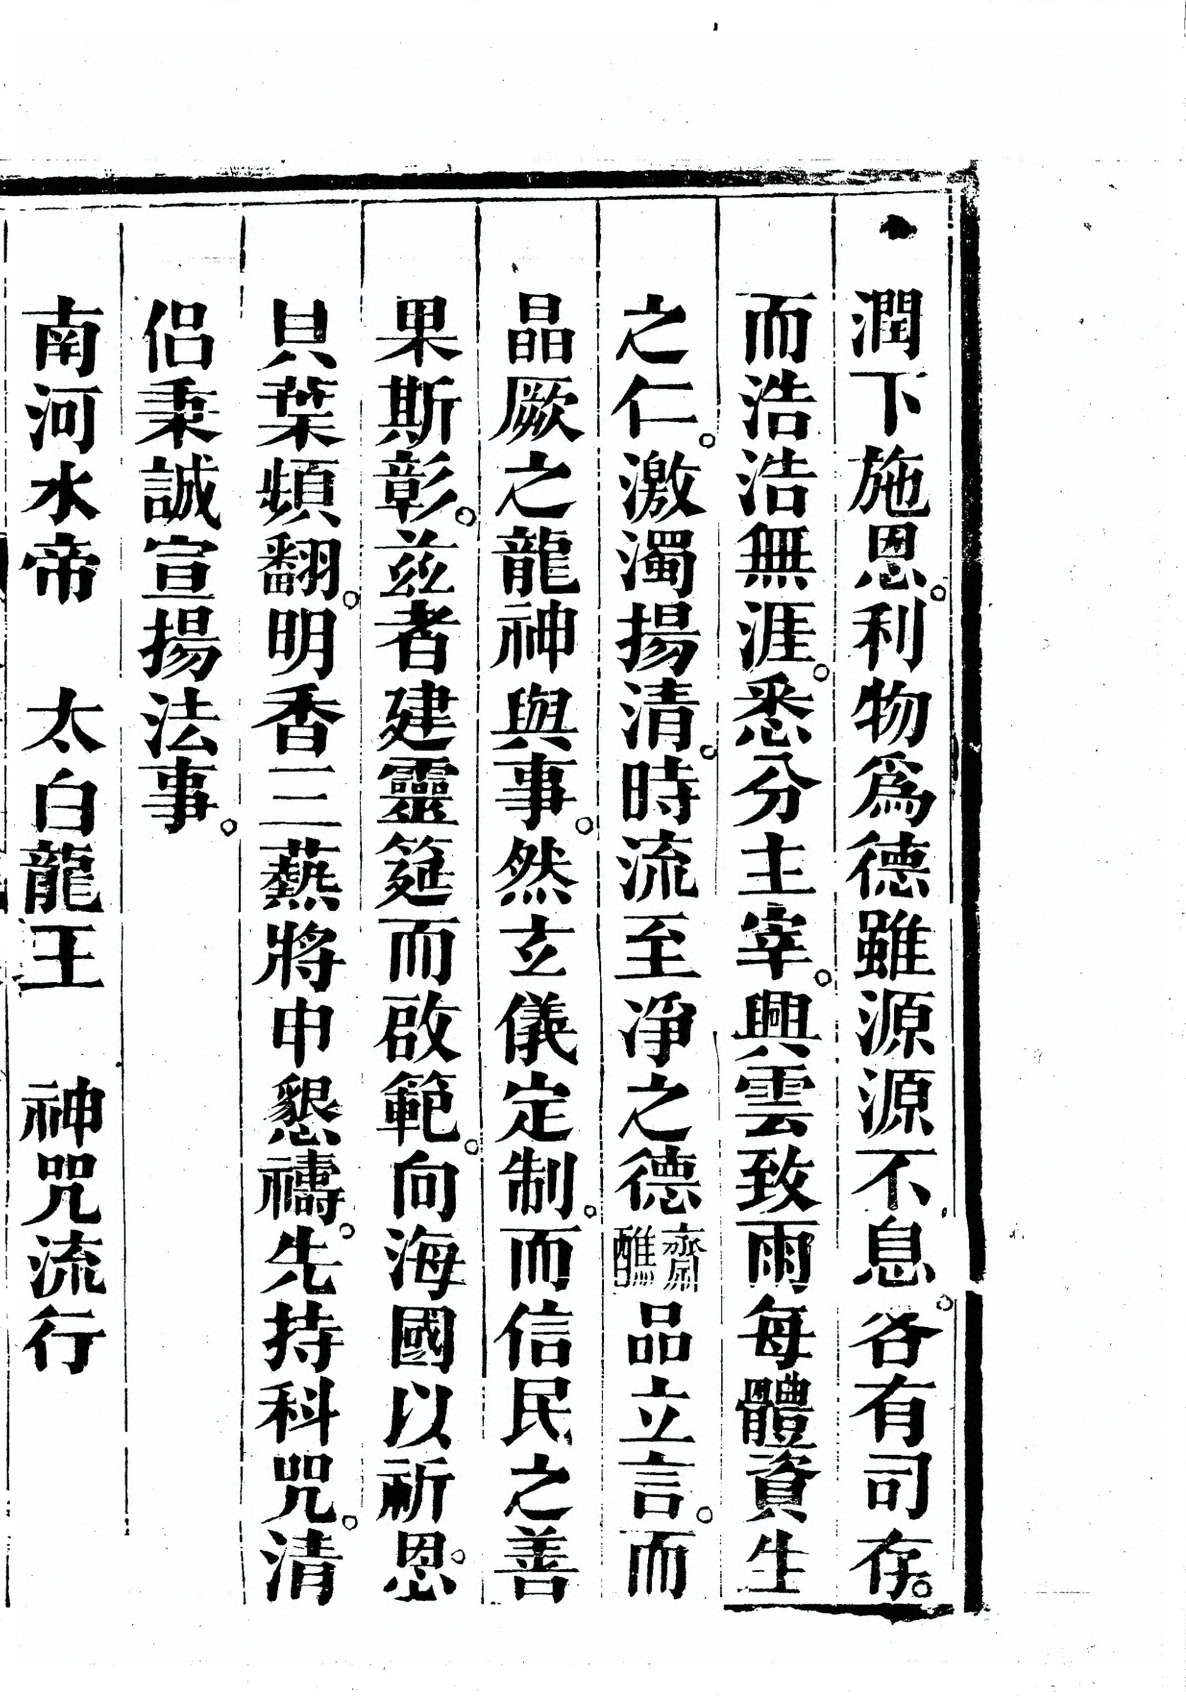 潤下施恩。利物為德雖源源不息。各有司存。
而浩浩無涯。悉分主宰。興雲致雨每體資生
之仁。激濁揚清。時流至淨之德齋醮品立言。而
晶厥之龍神與事。然立儀定制。而信民之善
果斯彰。茲者建靈筵而啟範。向海國以祈恩。
貝葉頻翻。明香三爇將申懇禱。先持科咒。清
侶秉誠宣揚法事。
南河水帝　太白龍王　神咒流行